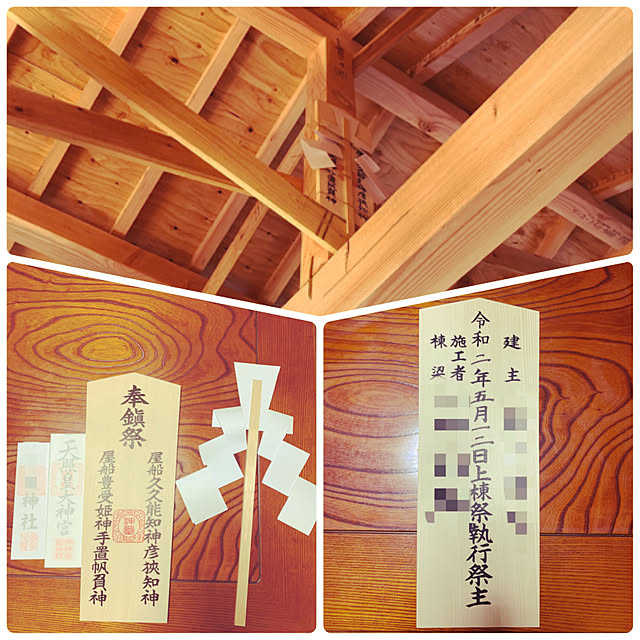 奉鎭祭
屋船久久能知神彦狹知神
屋船豊受姫神手置帆負神
天照皇大神宮
神社
建主
令和二年五月一二日上棟祭執行祭主
施工者
棟梁